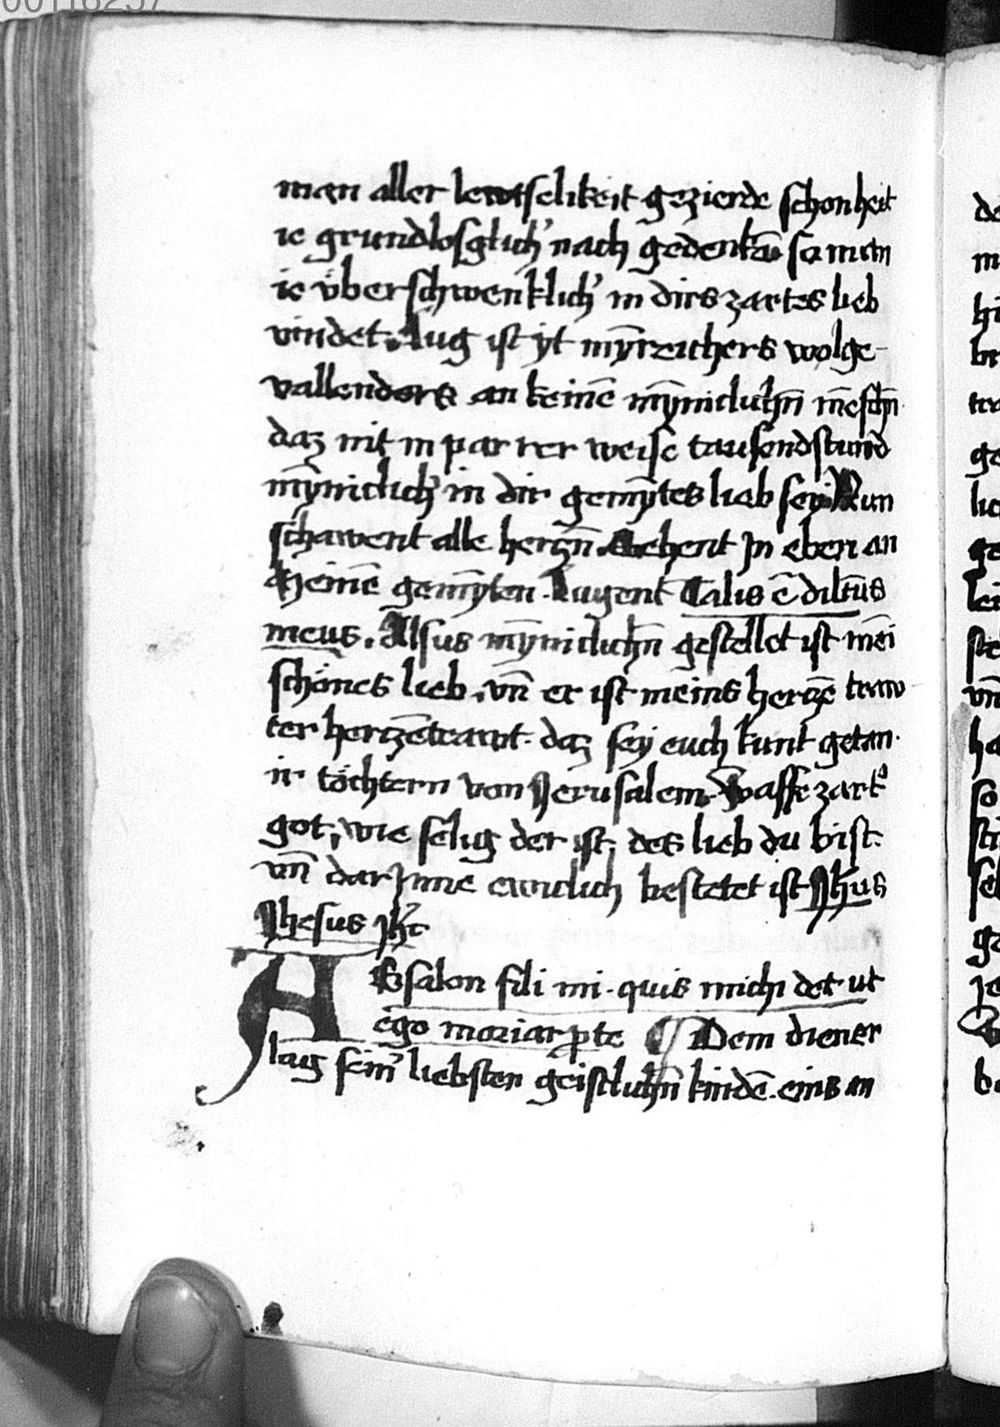 man aller lewtselikeit gezierde schonheit
ie grundlosglich' nach gedenkē so man
ie überschwenklich' in dirs zartes lieb
vindet. Lug ist yt mȳreichers wolge-
vallenders an keinē mȳniclichn̄ mēschn̄
daz nit in parrer weise tausendstund
mȳniclich' in dir gemȳtes lieb sey Nun
schawent alle hertzn̄ Sehent jn eben an
Meinē gemȳten. Lugent Talis ē dilcūs
meus. Alsus mȳniclichn̄ gestellet ist mēi
schönes lieb. vn̄ er ist meins hertzē traw
ter hertzētrawt. daz sey euch kunt getan.
ir töchtern von Jerusalem. Waffe zart'
got, wie selig der ist. des lieb du bist.
vn̄ dar Jnne ewiclich bestetet ist Jhūs
Jhesus
ABsalon fili mi. quis michi det ut
ego moriar ꝑ te ¶ Dem diener
lag sein' liebsten geistlichn̄ kindē. eins an